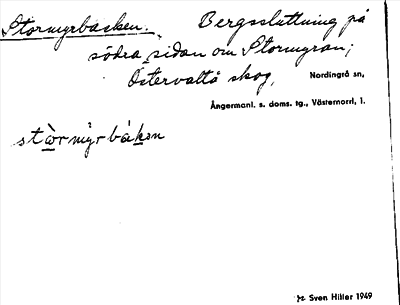 Stormyrbacken. Bergssluttning på
södra sidan om Stormyran;
Östervalto skog, Nordingrå sn,
Ångermanl. s. doms. tg., Västernorrl. l.
stòrmýrbàksn
Sven Hiller 1949